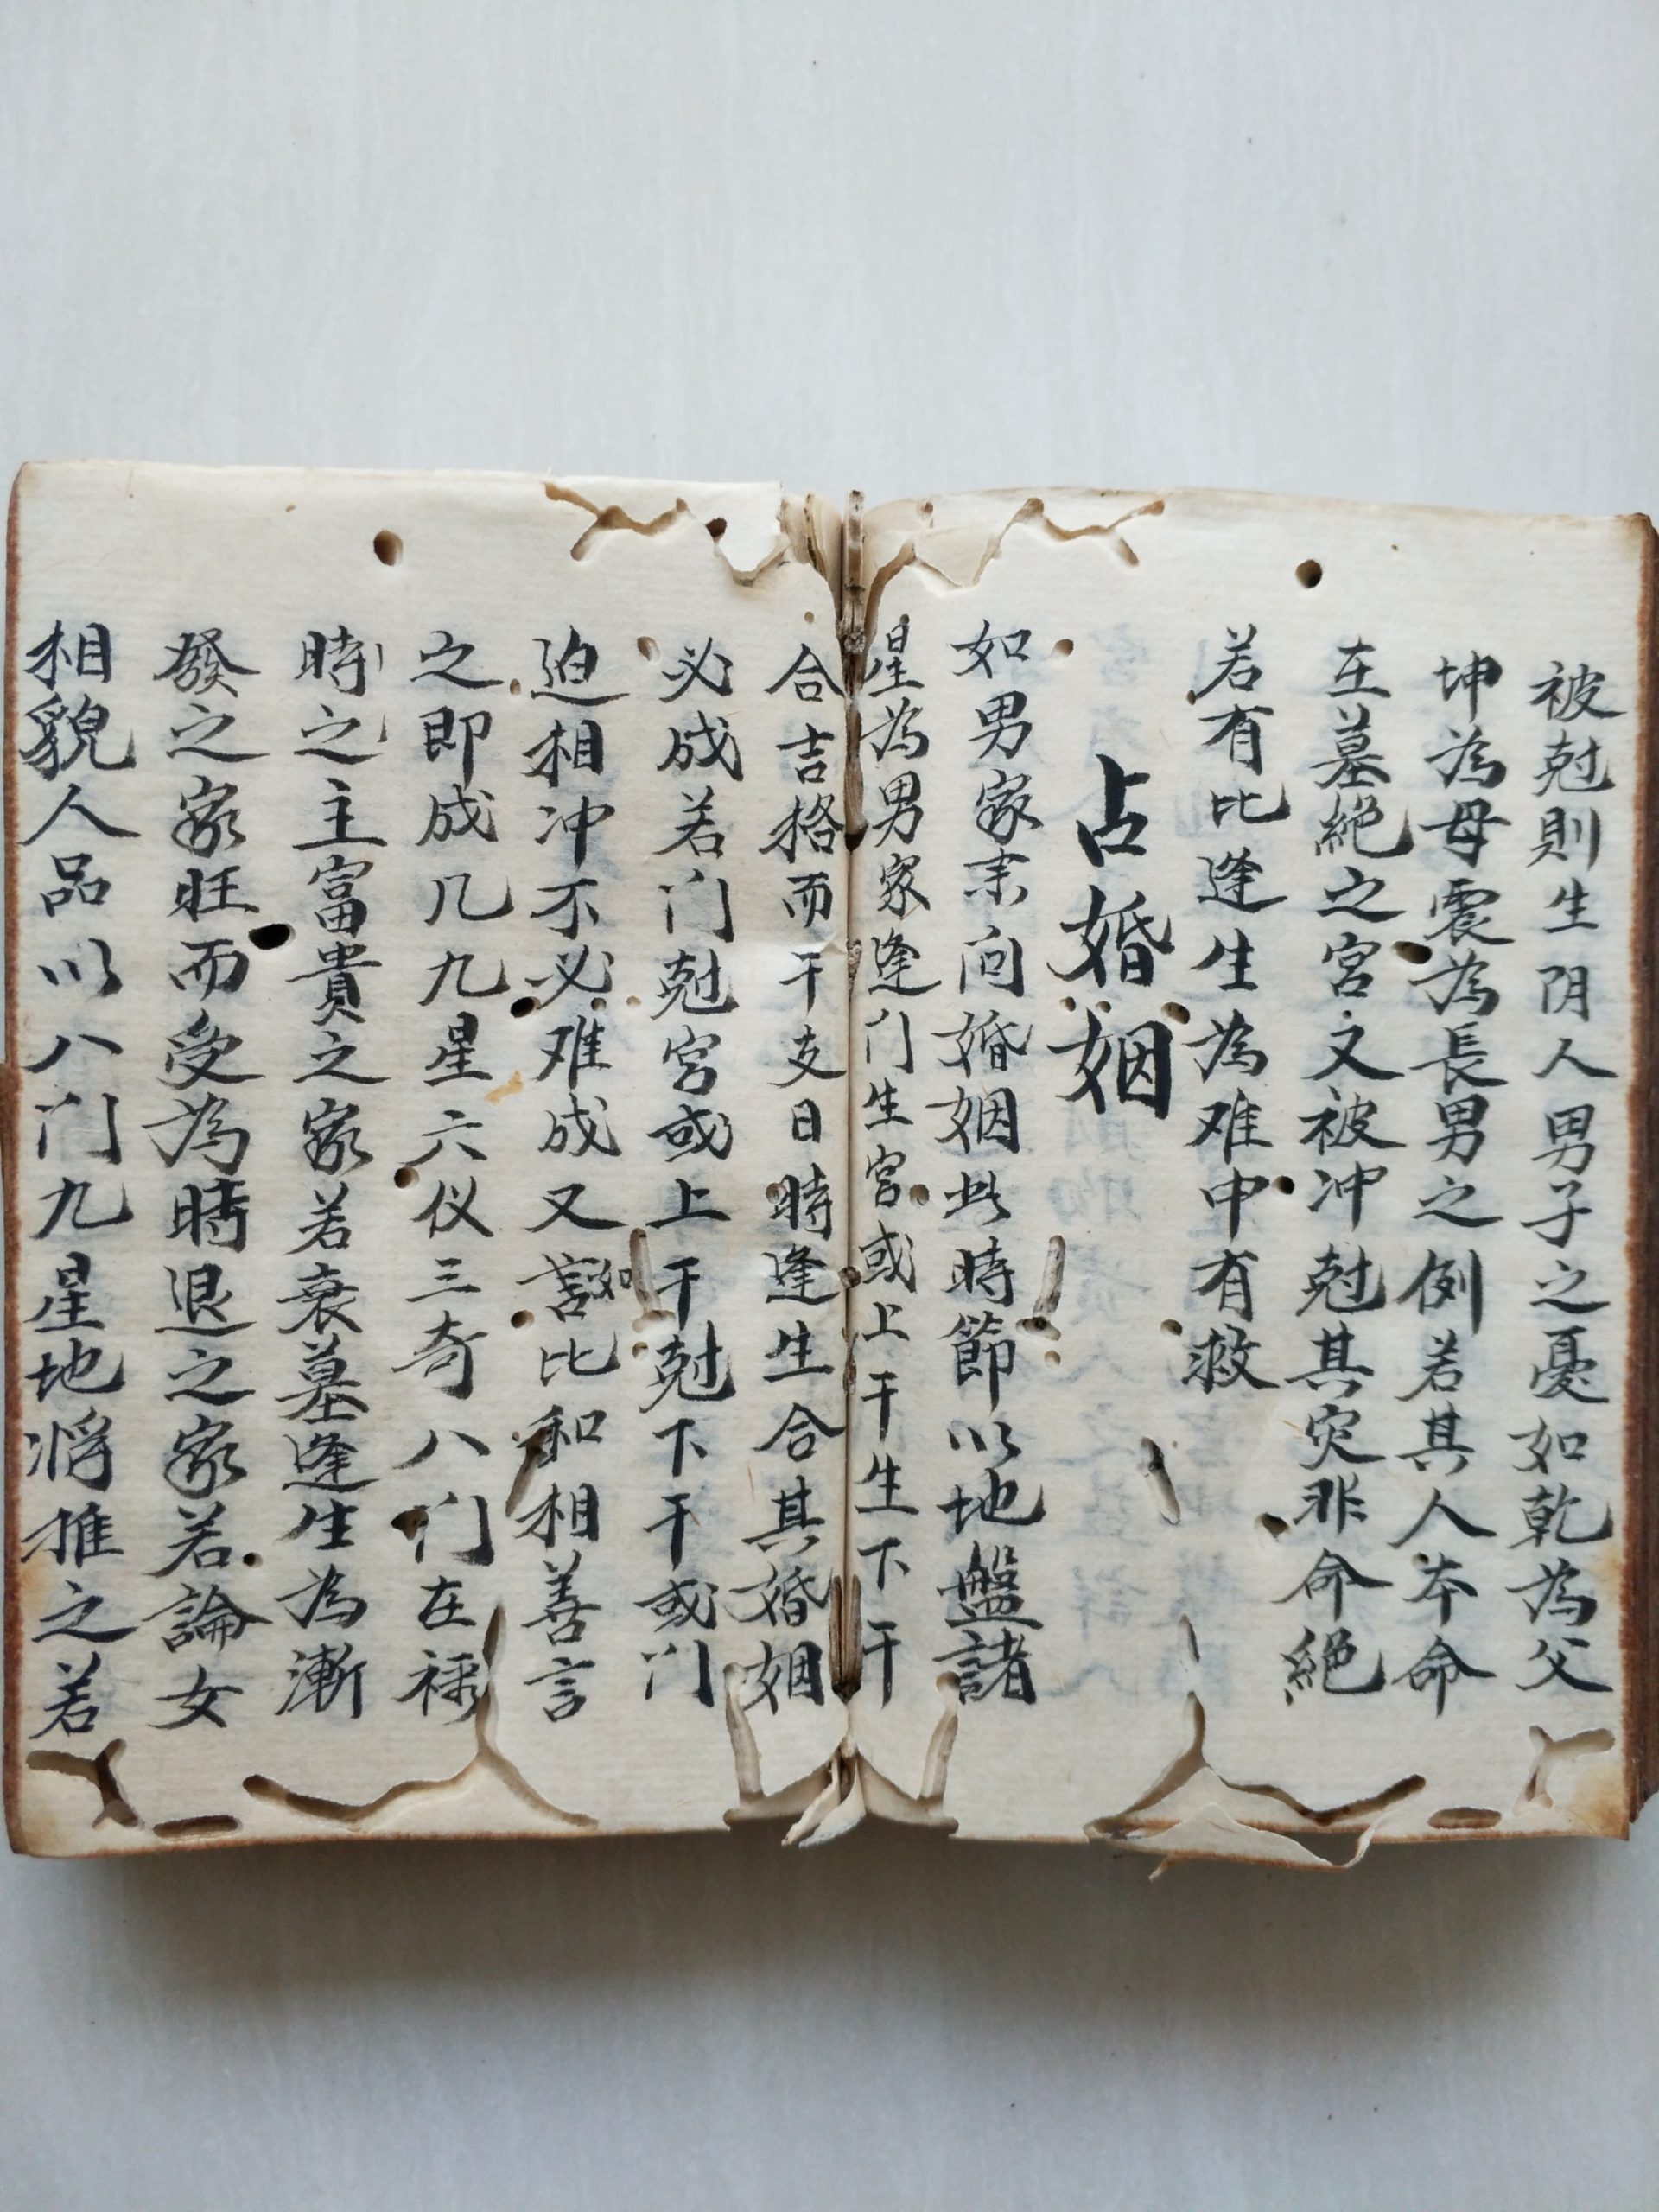 被尅則生阴人男子之憂如乾為父
坤為母震為長男之例若其人本命
在墓絕之宮又被冲尅其灾非命絕
若有比逢生為难中有救
占婚姻
如男家来问婚姻此時節以地盤諸
星為男家逢门生宮或上干生下干
合吉格而干支日時逢生合其婚姻
必成若门尅宮或上干尅下干或门
迫相冲不必难成又言如比和相善言
之即成几九星六仪三奇八门在禄
時之主富貴之家若衰墓逢生為漸
發之家旺而受為時退之家若論女
相貌人品以八门九星地將推之若